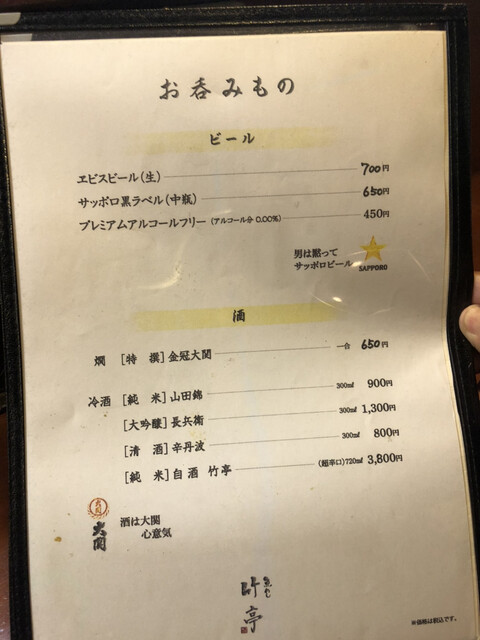 お呑みもの
ビール
ヱビスビール(生) 700円
サッポロ黒ラベル(中瓶) 650円
プレミアムアルコールフリー (アルコール分 0.00%) 450円
男は黙って
サッポロビール
SAPPORO
酒
燗 [特 撰]金冠大関 一合 650円
冷酒 [純 米]山田錦 300㎖ 900円
[大吟醸]長兵衛 300㎖ 1,300円
[清 酒]辛丹波 300㎖ 800円
[純 米]自酒 竹亭 (超辛口)720㎖ 3,800円
大関
酒は大関
心意気
竹亭
※価格は税込です。